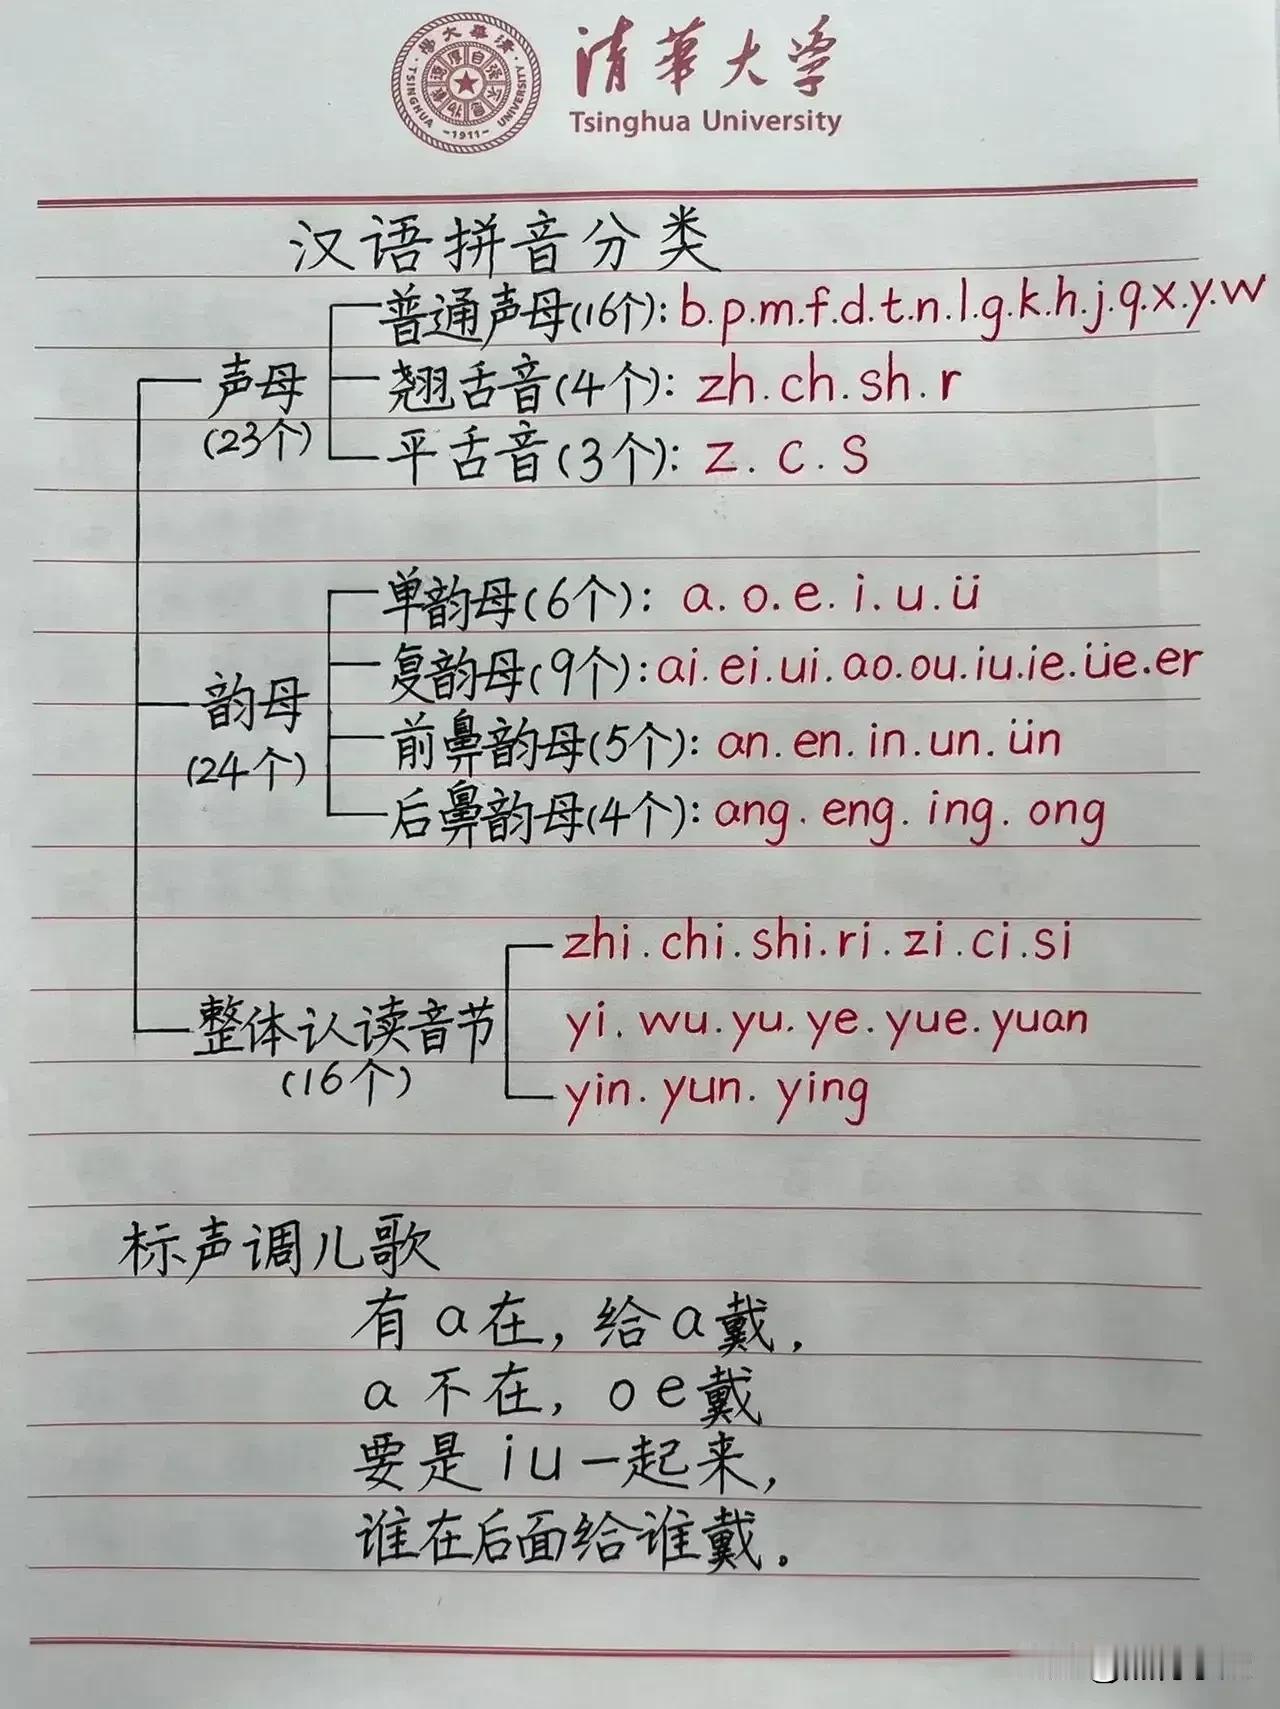 清華大学
Tsinghua University
·TSINGHUA UNIVERSITY·
-1911-
汉语拼音分类
声母
(23个)
普通声母(16个): b.p.m.f.d.t.n.l.g.k.h.j.q.x.y.w
翘舌音(4个): zh.ch.sh.r
平舌音(3个): z.c.s
韵母
(24个)
单韵母(6个): a.o.e.i.u.ü
复韵母(9个):ai.ei.ui.ao.ou.iu.ie.üe.er
前鼻韵母(5个): an.en.in.un.ün
后鼻韵母(4个): ang.eng.ing.ong
整体认读音节
(16个)
zhi.chi.shi.ri.zi.ci.si
yi.wu.yu.ye.yue.yuan
yin.yun.ying
标声调儿歌
有a在,给a戴,
a不在,oe戴
要是iu一起来,
谁在后面给谁戴。